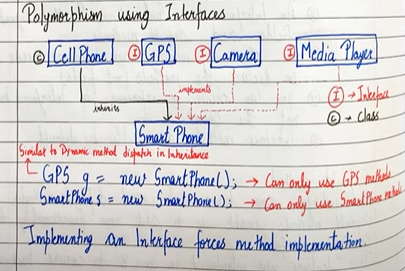 Polymorphism using Interfaces
Ⓒ Cell Phone Ⓘ GPS Ⓘ Camera Ⓘ Media Player
implements
Ⓘ → Interface
inherits
Ⓒ → class
Smart Phone
Similar to Dynamic method dispatch in Inheritance
GPS g = new SmartPhone(); → Can only use GPS methods
SmartPhone s = new SmartPhone(); → Can only use SmartPhone methods
Implementing an Interface forces method implementation.